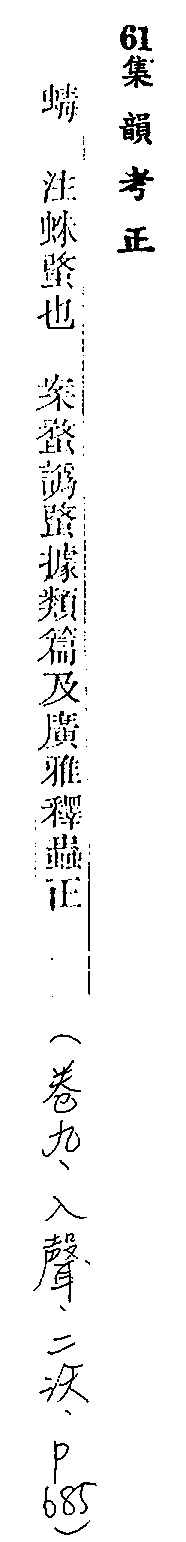 61集韻考正
蝳 注蛛也 案蝥譌據類篇及廣雅釋蟲正 (卷九、入聲、二沃、P685)